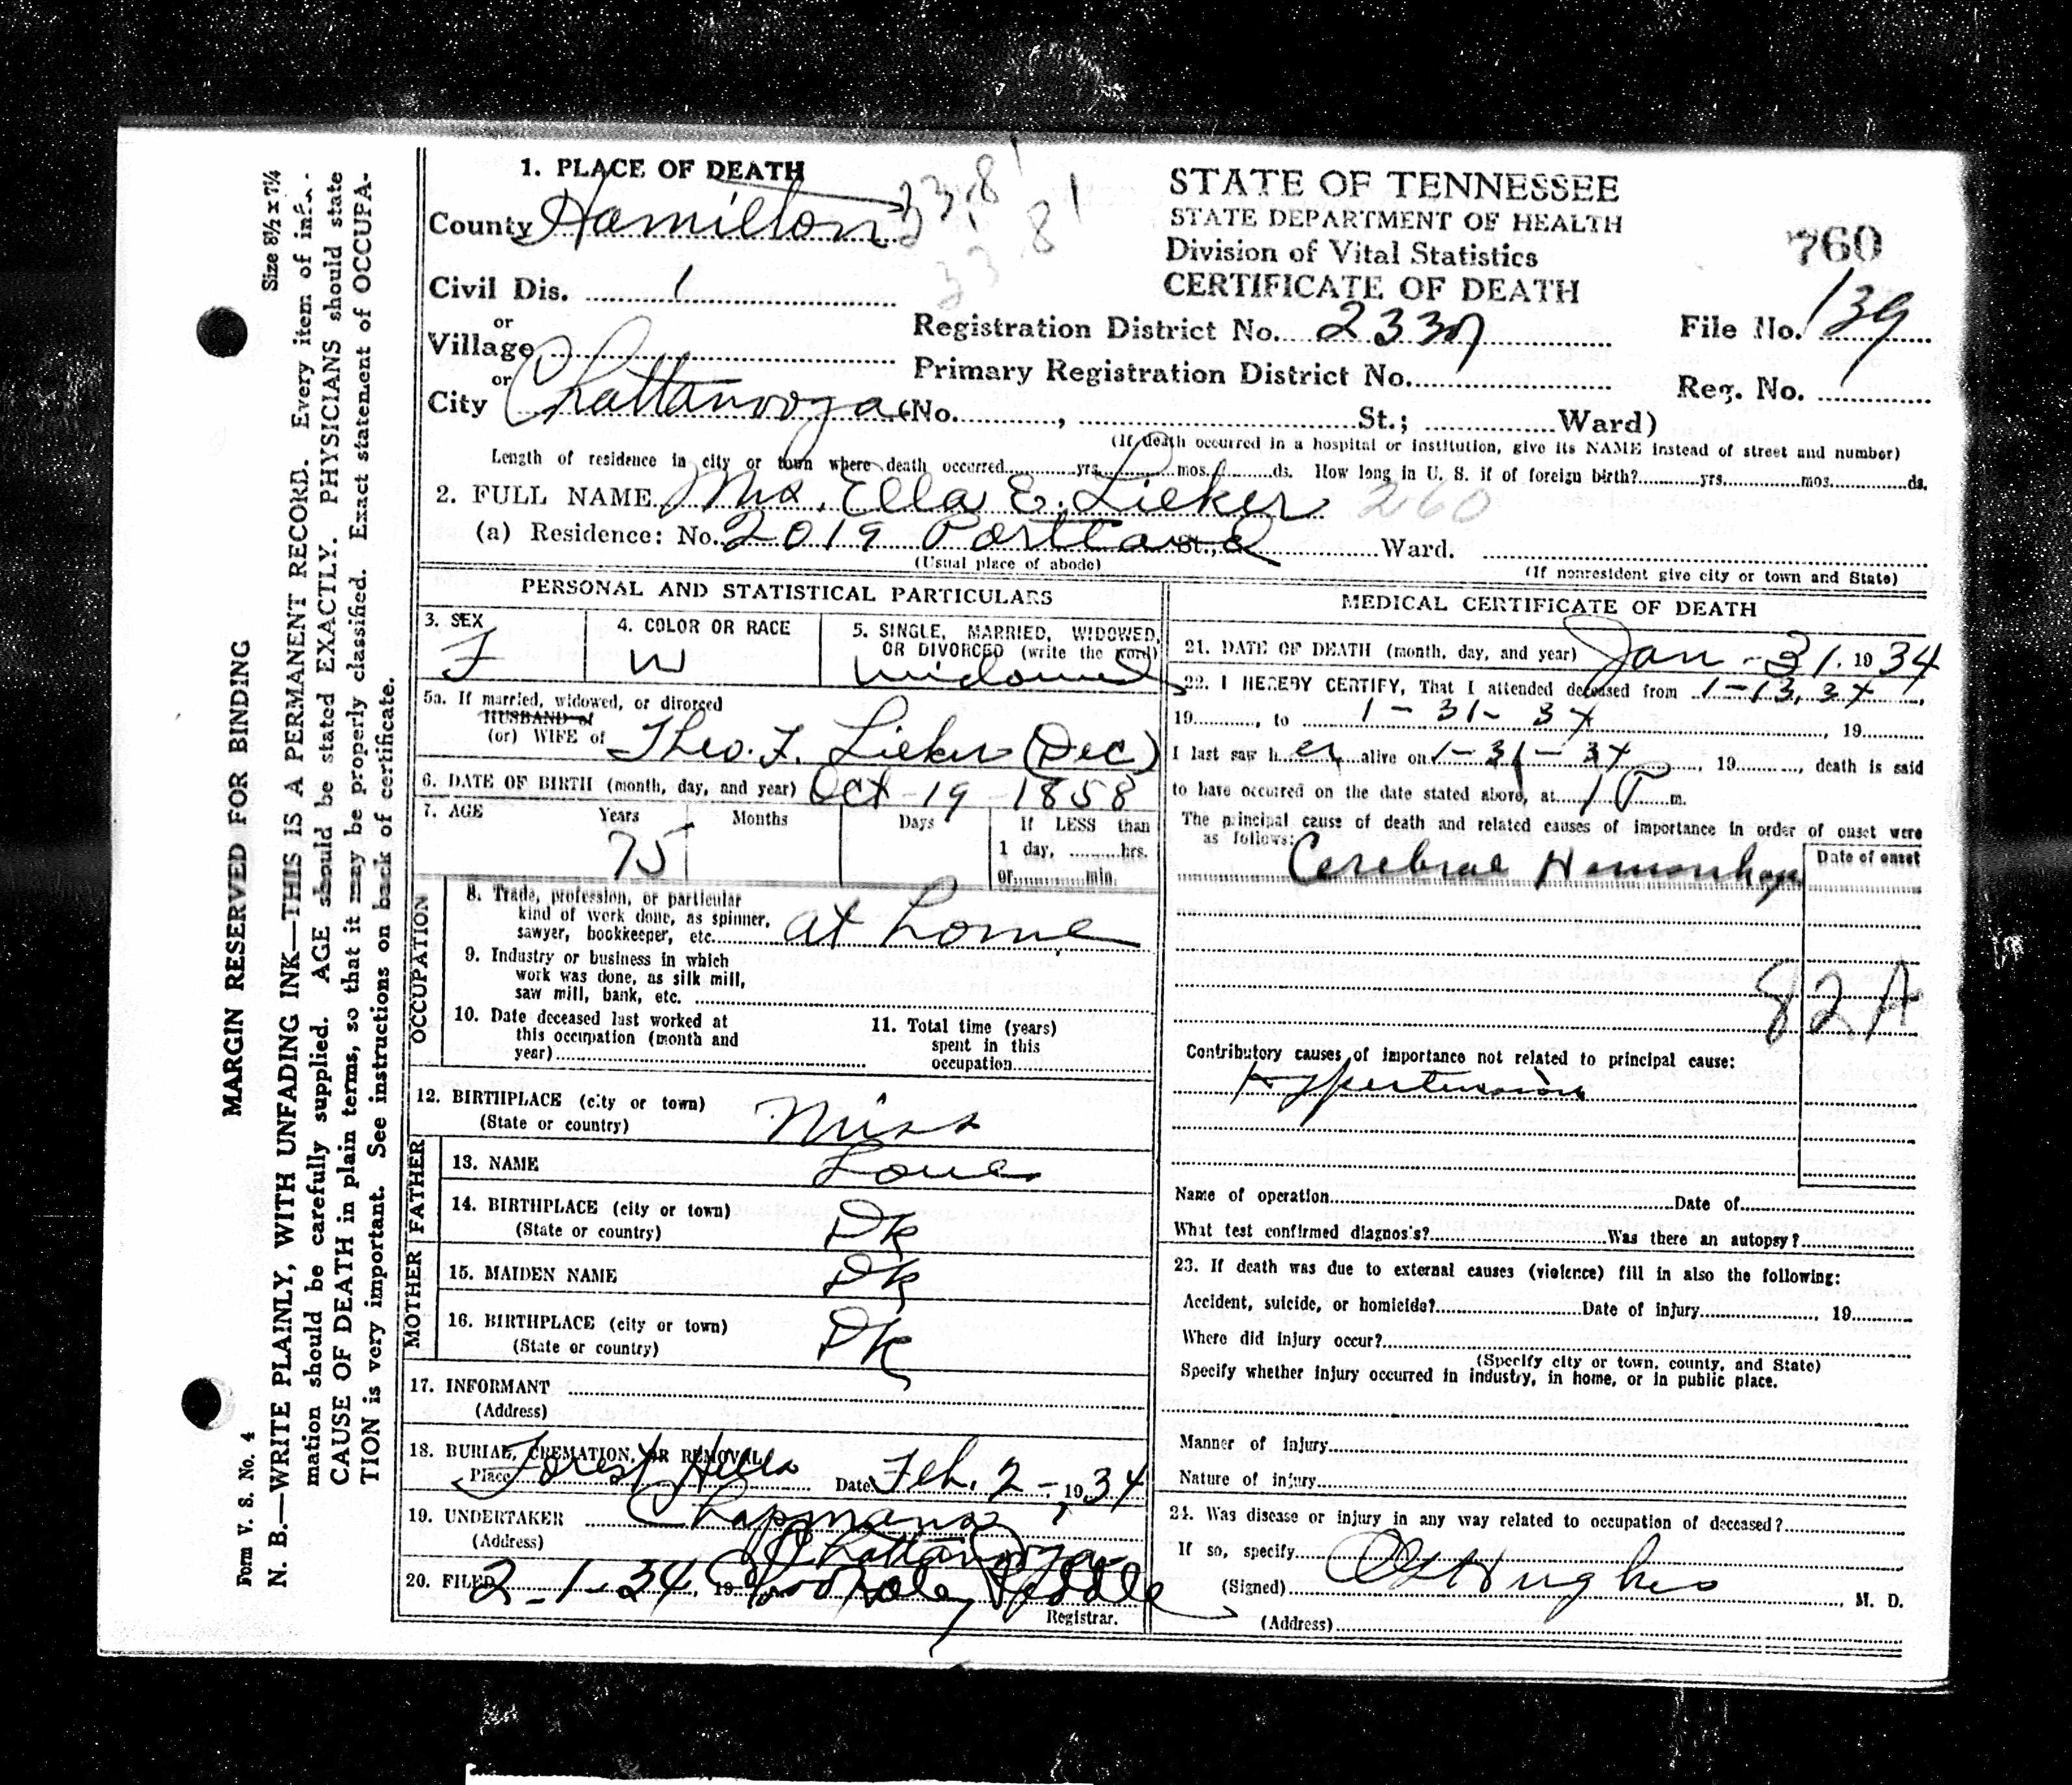 Size 8½ x 7¼
MARGIN RESERVED FOR BINDING
Form V. S. No. 4
N. B.—WRITE PLAINLY, WITH UNFADING INK—THIS IS A PERMANENT RECORD. Every item of infor-
mation should be carefully supplied. AGE should be stated EXACTLY. PHYSICIANS should state
CAUSE OF DEATH in plain terms, so that it may be properly classified. Exact statement of OCCUPA-
TION is very important. See instructions on back of certificate.
1. PLACE OF DEATH
County Hamilton
33.8
33.8
Civil Dis. 1
or
Village
or
City Chattanooga (No. , St.; Ward)
STATE OF TENNESSEE
STATE DEPARTMENT OF HEALTH
Division of Vital Statistics
CERTIFICATE OF DEATH
760
Registration District No. 2337
File No. 139
Primary Registration District No.
Reg. No.
(If death occurred in a hospital or institution, give its NAME instead of street and number)
Length of residence in city or town where death occurred yrs. mos. ds. How long in U. S. if of foreign birth? yrs. mos. ds.
2. FULL NAME Mrs. Ella E. Lieker 260
(a) Residence: No. 2019 Portland St., Ward.
(Usual place of abode) (If nonresident give city or town and State)
PERSONAL AND STATISTICAL PARTICULARS
3. SEX
F
4. COLOR OR RACE
W
5. SINGLE, MARRIED, WIDOWED,
OR DIVORCED (write the word)
widowed
5a. If married, widowed, or divorced
HUSBAND of
(or) WIFE of Theo. F. Lieker (Dec)
6. DATE OF BIRTH (month, day, and year) Oct-19-1858
7. AGE Years Months Days If LESS than
75
1 day, hrs.
or min.
OCCUPATION
8. Trade, profession, or particular
kind of work done, as spinner,
sawyer, bookkeeper, etc. at home
9. Industry or business in which
work was done, as silk mill,
saw mill, bank, etc.
10. Date deceased last worked at
this occupation (month and
year)
11. Total time (years)
spent in this
occupation
12. BIRTHPLACE (city or town)
(State or country) Miss
FATHER
13. NAME Love
14. BIRTHPLACE (city or town)
(State or country) Dk
MOTHER
15. MAIDEN NAME Dk
16. BIRTHPLACE (city or town)
(State or country) Dk
17. INFORMANT
(Address)
18. BURIAL, CREMATION, OR REMOVAL
Place Forest Hills Date Feb. 2-, 1934
19. UNDERTAKER Chapmans
(Address) Chattanooga
20. FILED 2-1-34, 19
Registrar.
MEDICAL CERTIFICATE OF DEATH
21. DATE OF DEATH (month, day, and year) Jan-31. 1934
22. I HEREBY CERTIFY, That I attended deceased from 1-13, 34,
19 , to 1-31-34, 19
I last saw her alive on 1-31-34, 19 , death is said
to have occurred on the date stated above, at 1 P m.
The principal cause of death and related causes of importance in order of onset were
as follows:
Date of onset
Cerebral Hemorrhage
82A
Contributory causes of importance not related to principal cause:
Hypertension
Name of operation Date of
What test confirmed diagnosis? Was there an autopsy?
23. If death was due to external causes (violence) fill in also the following:
Accident, suicide, or homicide? Date of injury , 19
Where did injury occur?
(Specify city or town, county, and State)
Specify whether injury occurred in industry, in home, or in public place.
Manner of injury
Nature of injury
24. Was disease or injury in any way related to occupation of deceased?
If so, specify
(Signed) Hughes , M. D.
(Address)